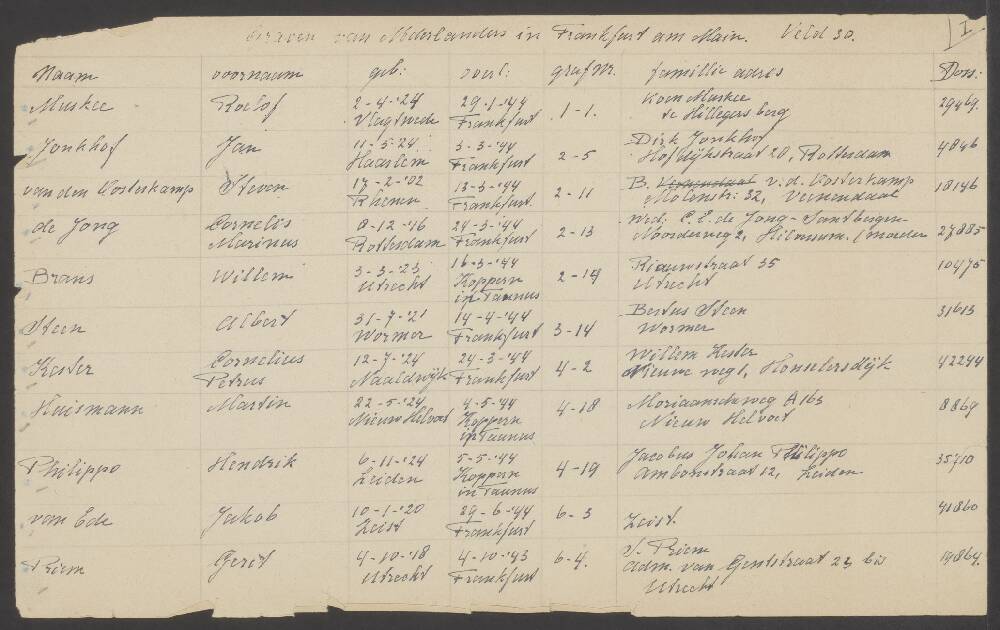 Graven van Nederlanders in Frankfurt am Main. Veld 30.
I
Naam voornaam geb: overl: graf Nr. familie adres Dos:
Muskee Roelof 2-4-'24 29-1-'44 1-1. Koen Muskee 29469.
Vlagtwedde Frankfurt te Hillegersberg
Jonkhof Jan 11-5-24 3-3-'44 2-5 Dirk Jonkhof 4846
Haarlem Frankfurt Hofdijkstraat 20, Rotterdam
van den Oosterkamp Steven 17-2-'02 13-3-'44 2-11 B. v.d. Oosterkamp 18146
Rhenen Frankfurt Molenstr: 32, Veenendaal
de Jong Cornelis 8-12-'16 24-3-'44 2-13 Wed: C.E. de Jong-Santbergen 27885
Marinus Rotterdam Frankfurt Noorderweg 2, Hilversum. (moeder
Brans Willem 3-3-'23 16-3-'44 2-14 Riouwstraat 35 10475
Utrecht Koppern Utrecht
in Taunus
Steen Albert 31-7-'21 14-4-'44 3-14 Bertus Steen 31613
Wormer Frankfurt Wormer
Kester Cornelius 12-7-'24 24-3-'44 4-2 Willem Kester 42244
Petrus Naaldwijk Frankfurt Nieuwe weg 1, Honselersdijk
Huismann Martin 22-5-'24 4-5-'44 4-18 Moriaanscheweg A 163 8869
Nieuw Helvoet Koppern Nieuw Helvoet
in Taunus
Philippo Hendrik 6-11-'24 5-5-'44 4-19 Jacobus Johan Philippo 35710
Leiden Koppern Ambonstraat 12, Leiden
in Taunus
van Ede Jakob 10-1-'20 29-6-'44 6-3 Zeist. 41860
Zeist Frankfurt
Priem Gerit 4-10-'18 4-10-'43 6-4. Priem 19864.
Utrecht Frankfurt Adm. van Gentstraat 23 bis
Utrecht